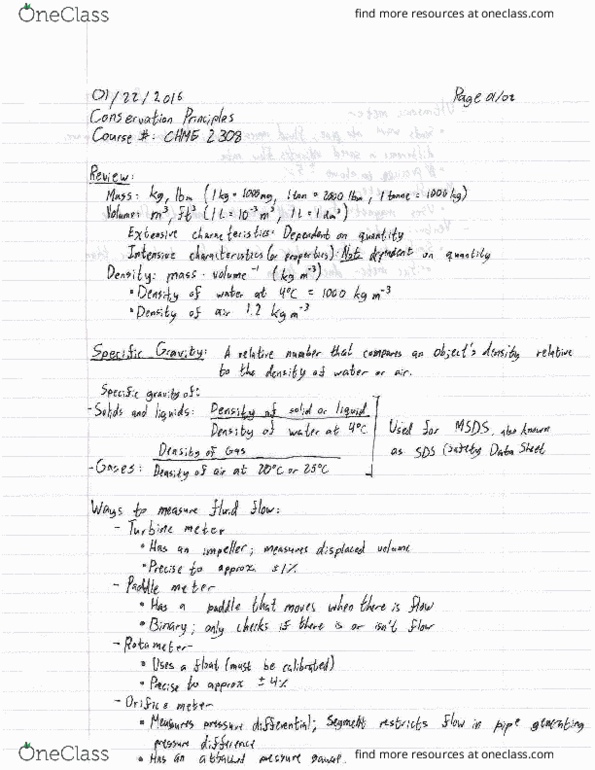 OneClass
find more resources at oneclass.com
01/22/2016 Page 01/02
Conservation Principles
Course #: CHME 2308
Review:
Mass: kg, lbm (1 kg = 1000 mg, 1 tan = 2000 lbm, 1 tonne = 1000 kg)
Volume: m³, ft³ (1 L = 10⁻³ m³, 1 L = 1 dm³)
Extensive characteristics: Dependent on quantity
Intensive characteristics (or properties): Not dependent on quantity
Density: mass · volume⁻¹ (kg m⁻³)
• Density of water at 4°C = 1000 kg m⁻³
• Density of air 1.2 kg m⁻³
Specific Gravity: A relative number that compares an object's density relative
to the density of water or air.
Specific gravity of:
- Solids and liquids: Density of solid or liquid
Density of water at 4°C
Used for MSDS, also known
as SDS (Safety Data Sheet
Density of Gas
- Gases: Density of air at 20°C or 25°C
Ways to measure fluid flow:
- Turbine meter
• Has an impeller; measures displaced volume
• Precise to approx. ±1%
- Paddle meter
• Has a paddle that moves when there is flow
• Binary; only checks if there is or isn't flow
- Rotameter
• Uses a float (must be calibrated)
• Precise to approx ±4%
- Orifice meter
• Measures pressure differential; Segment restricts flow in pipe generating
pressure difference
• Has an attached pressure
OneClass
find more resources at oneclass.com